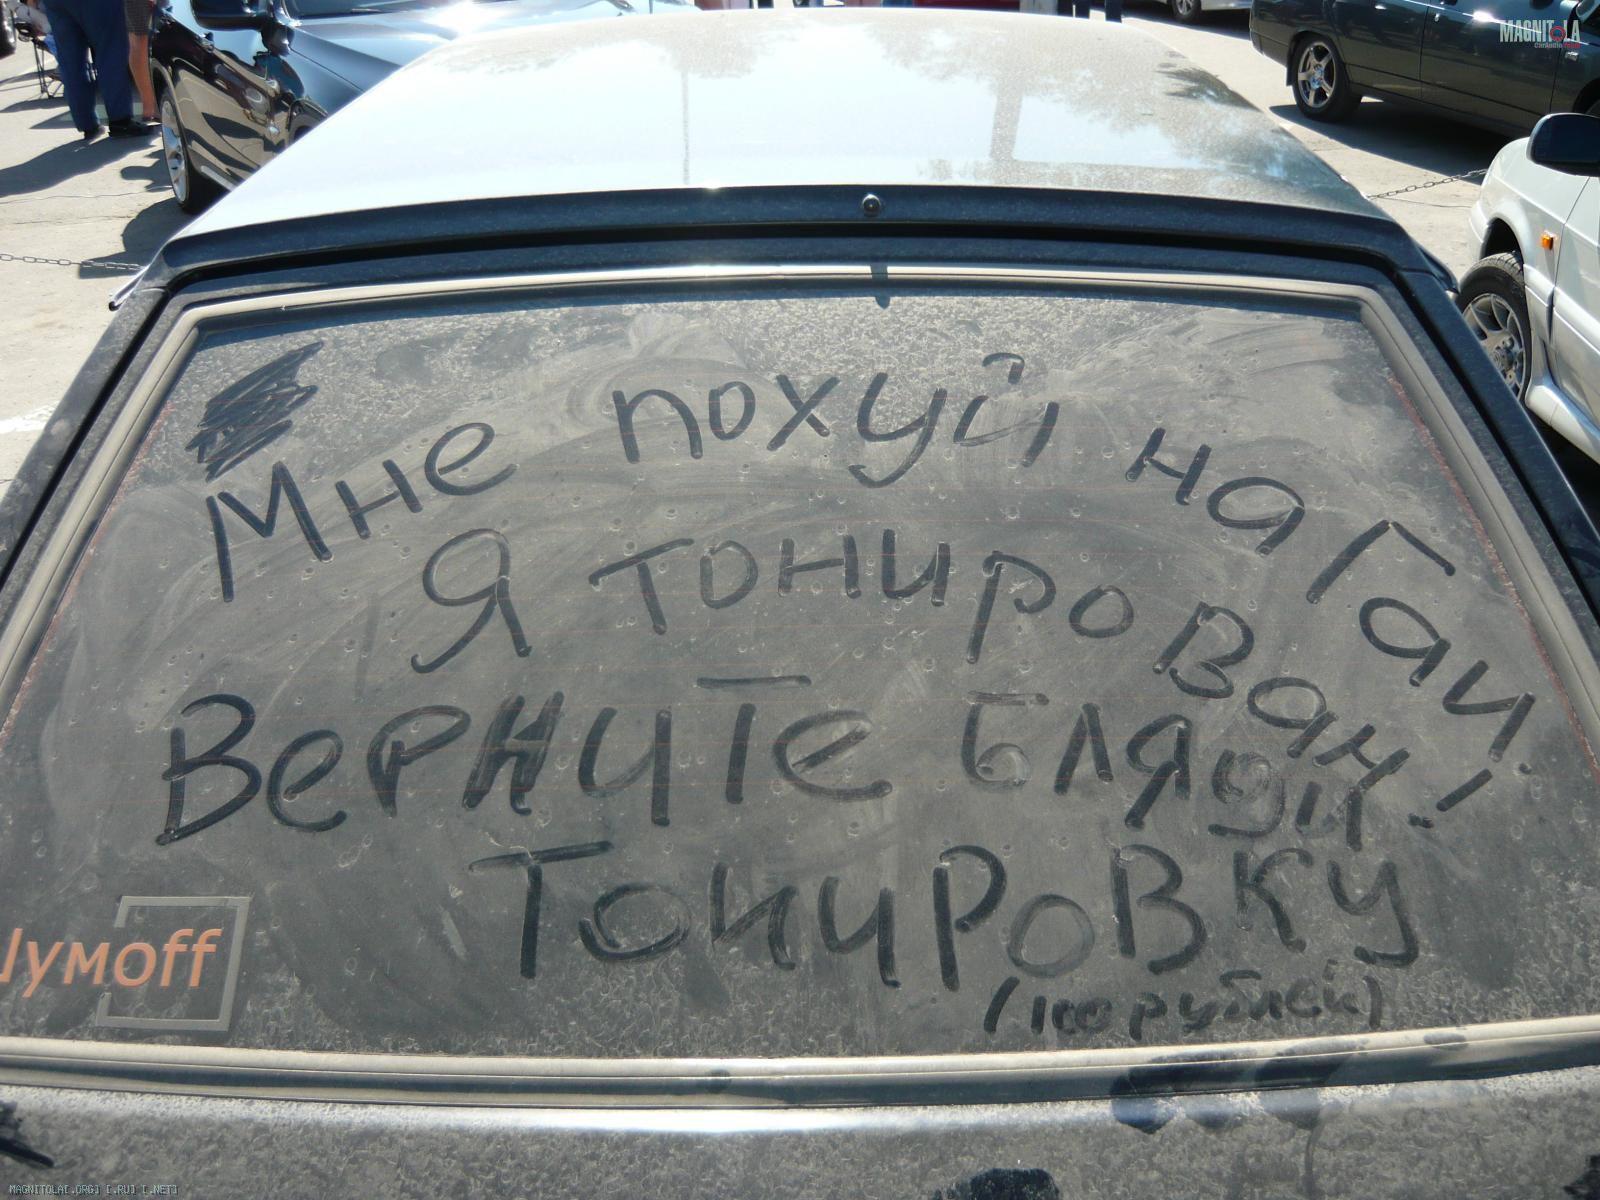 MAGNITOLA
CarAudio Team
Мне похуй на Гаи!
Я тонирован!
Верните бляди
Тонировку
(100 рублей)
Шумоff
MAGNITOLA[.ORG] [.RU] [.NET]